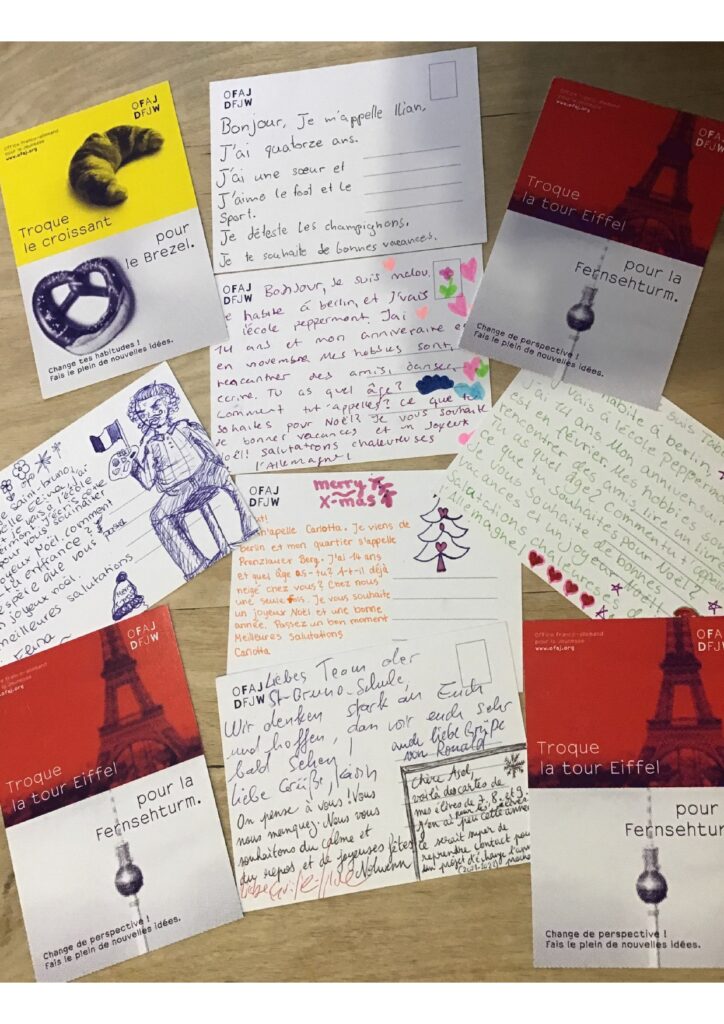 OFAJ
DFJW
Office franco-allemand
pour la Jeunesse
www.ofaj.org
Troque
le croissant
pour
le Brezel.
Change tes habitudes !
Fais le plein de nouvelles idées.
OFAJ
DFJW
Bonjour, Je m'appelle Ilian,
J'ai quatorze ans.
J'ai une sœur et
J'aime le foot et le
Sport.
Je déteste les champignons.
Je te souhaite de bonnes vacances.
OFAJ
DFJW
Office franco-allemand
pour la Jeunesse
www.ofaj.org
Troque
la tour Eiffel
pour la
Fernsehturm.
Change de perspective !
Fais le plein de nouvelles idées.
OFAJ
DFJW
Bonjour, Je suis melou,
habite à berlin, et J'vais
l'école peppermont. J'ai
14 ans et mon anniversaire e
en novembre Mes hobbies sont,
rencontrer des amis, danser,
ecrire. Tu as quel âge?
Comment tut'appelles? Ce que tu
souhaites pour Noël? Je vous souhaite
de bonner vacances et un Joyeux
Noël! salutations chaleureuses
l'Allemagne!
saint-bruno
l'école
pour
Joyeux Noël comment
enfrance?
que vous
n joyeux noël.
meilleures salutations
OFAJ
DFJW
merry
X-mas
m'appelle Carlotta. Je viens de
berlin et mon quartier s'appelle
Prenzlauer Berg. J'ai 14 ans
et quel âge as-tu? A-t-il déjà
neigé chez vous? Chez nous
une seule fois. Je vous souhaite
un joyeux Noël et une bonne
année. Passez un bon moment
Meilleures Salutations
Carlotta
habite a berlin
vais à l'école pepper
j'ai 14 ans Mon anni
est en février. Mes hobbi
rencontrer des
Tu as quel âge? Comment
ce que tu souhaites pour Noël?
Je vous souhaite de bonne
vacances et un Joyeux Noël
Salutations chaleureuses de
l'Allemagne
OFAJ
DFJW
Liebes Team der
St-Bruno-Schule,
Wir denken stark an Euch
und hoffen, dan wir euch sehr
bald Sehen!
liebe Grüße,
auch liebe Grüße
von Ronald
On pense à vous! Vous
nous manquez. Nous vous
souhaitons du calme et
du repos et de joyeuses fêtes
Nolwenn
Chère Asol,
voilà des cartes de
mes élèves de 7, 8, et 9.
j'en ai peu cette anné
ce serait super de
reprendre contact pou
un projet d'échange l'an
OFAJ
DFJW
Troque
la tour Eiffel
pour la
Fernsehturm.
Change de perspective !
Fais le plein de nouvelles idées.
OFAJ
DFJW
Office franco-allemand
pour la Jeunesse
www.ofaj.org
Troque
la tour Eiffel
pour
Fernsehturm.
Change de perspective !
Fais le plein de nouvelles idées.